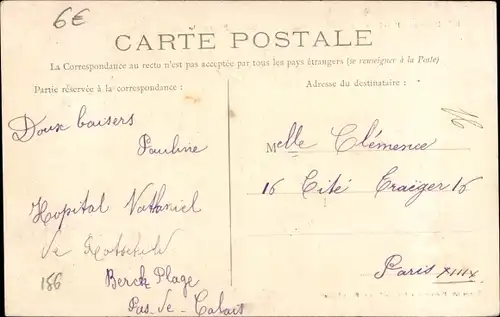 6€
CARTE POSTALE
La Correspondance au recto n'est pas acceptée par tous les pays étrangers (se renseigner à la Poste)
Partie réservée à la correspondance :
Adresse du destinataire :
Doux baisers
Pauline
Hopital Nathaniel
de Rotschild
Berck Plage
Pas-de-Calais
186
16
Melle Clémence
16 Cité Traëger 16
Paris XIIIX